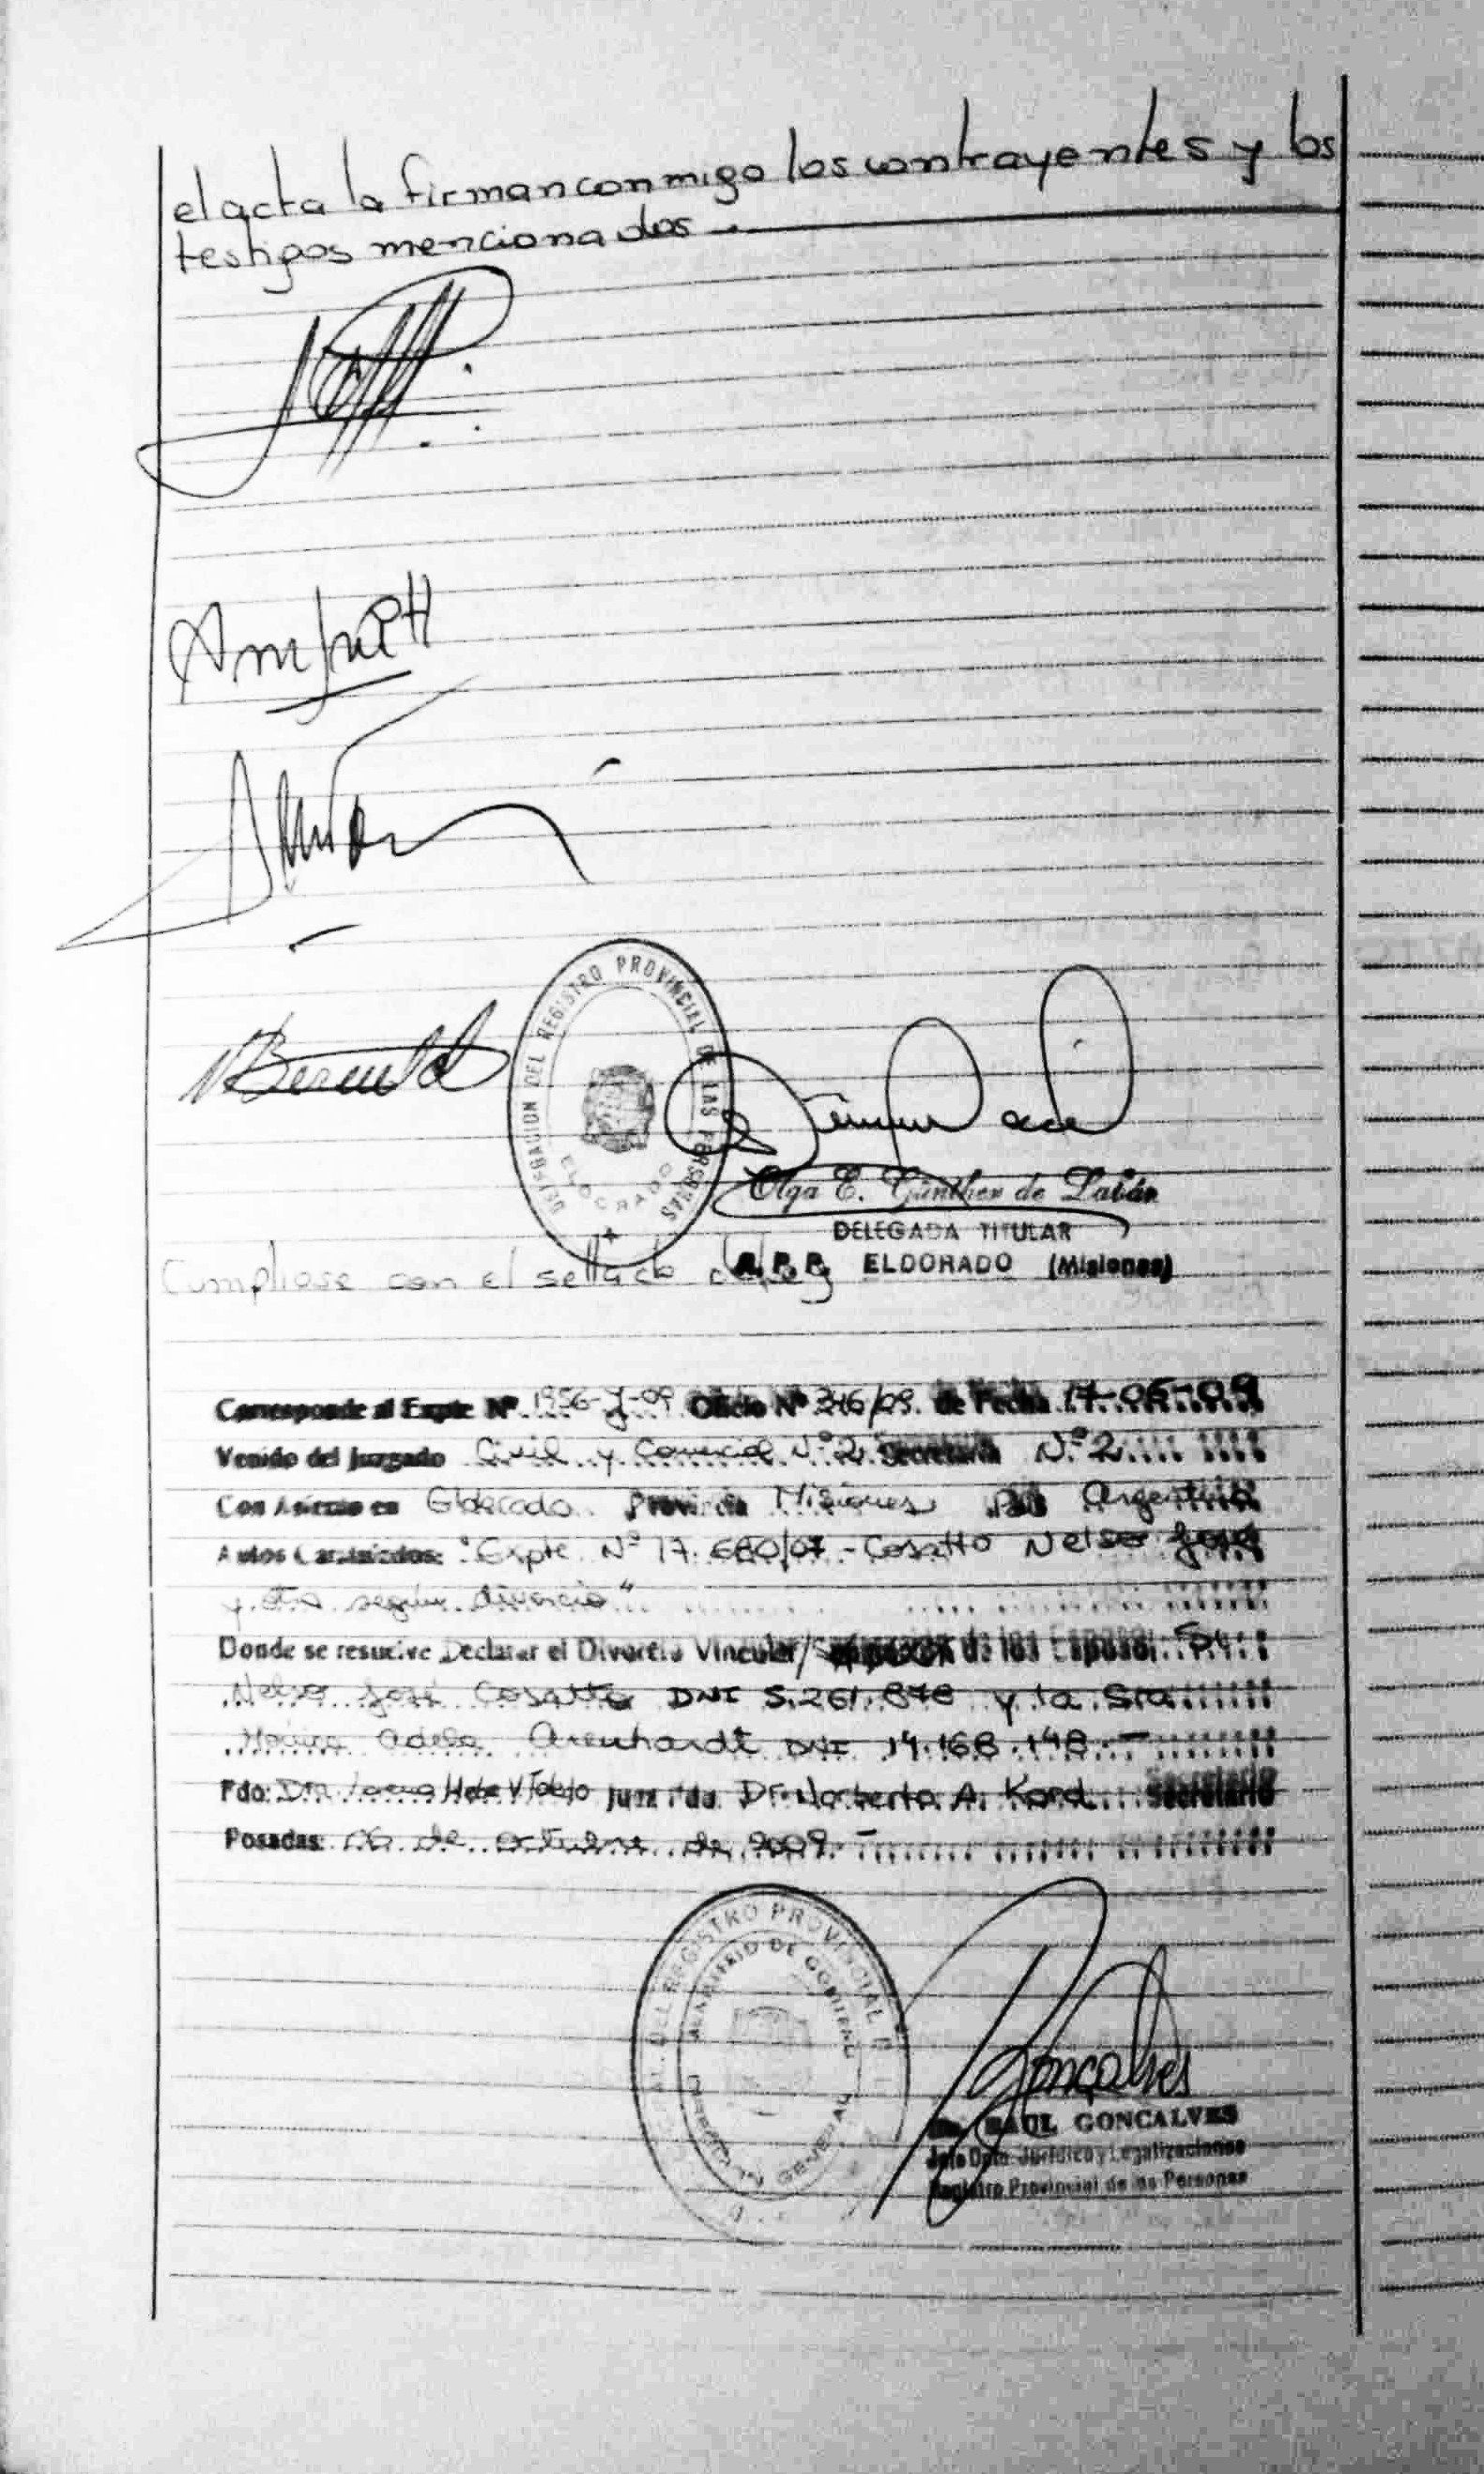 el acta la firman conmigo los contrayentes y los
testigos mencionados
DELEGACION DEL REGISTRO PROVINCIAL DE LAS PERSONAS
ELDORADO
Olga E. Günther de Labán
DELEGADA TITULAR
R.P.P. ELDORADO (Misiones)
Cumpliose con el sellado de ley
Corresponde al Expte Nº 1956-y-09 Oficio Nº 346/09 de Fecha 17-06-09
Venido del Juzgado Civil y Comercial Nº 2 Secretaria Nº 2
Con Asiento en Eldorado Provincia Misiones Pais Argentina
Autos Caratulados: "Expte Nº 17.680/07 - Cosatto Nelso José
y otra según divorcio"
Donde se resuelve Declarar el Divorcio Vincular/ de los Esposos: Sr.
Nelso José Cosatto DNI 5.261.878 y la Sra
Adela Arenhardt DNI 14.168.148.-
Fdo: Dra. Juez Fdo. Dr. Norberto A. Kord. Secretario
Posadas: 06 de octubre de 2009.-
DEL REGISTRO PROVINCIAL
MINISTERIO DE GOBIERNO
DIRECCION GENERAL
Goncalves
RAUL GONCALVES
Jefe Dpto. Jurídico y Legalizaciones
Registro Provincial de las Personas